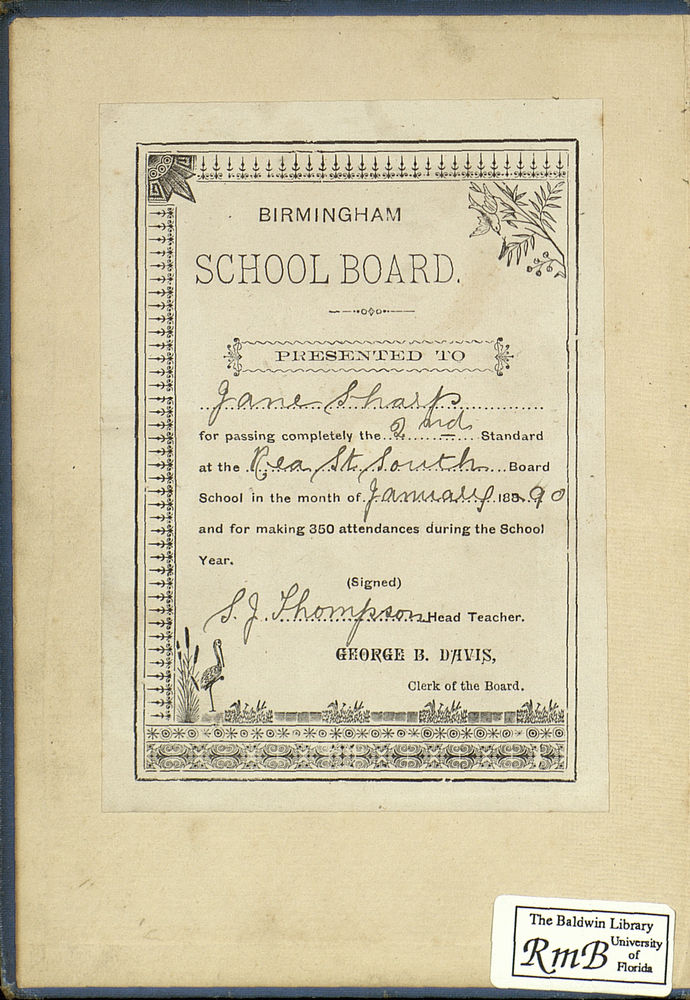 BIRMINGHAM
SCHOOL BOARD.
PRESENTED TO
Jane Sharp
for passing completely the 2nd Standard
at the Rea St. South Board
School in the month of January 188 90
and for making 350 attendances during the School
Year.
(Signed)
S. J. Thompson Head Teacher.
GEORGE B. DAVIS,
Clerk of the Board.
The Baldwin Library
RmB University
of
Florida